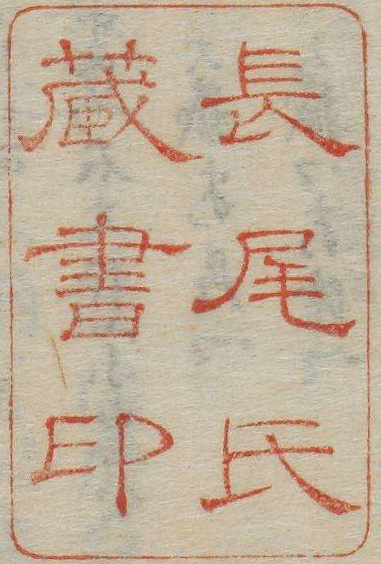 長尾氏
藏書印